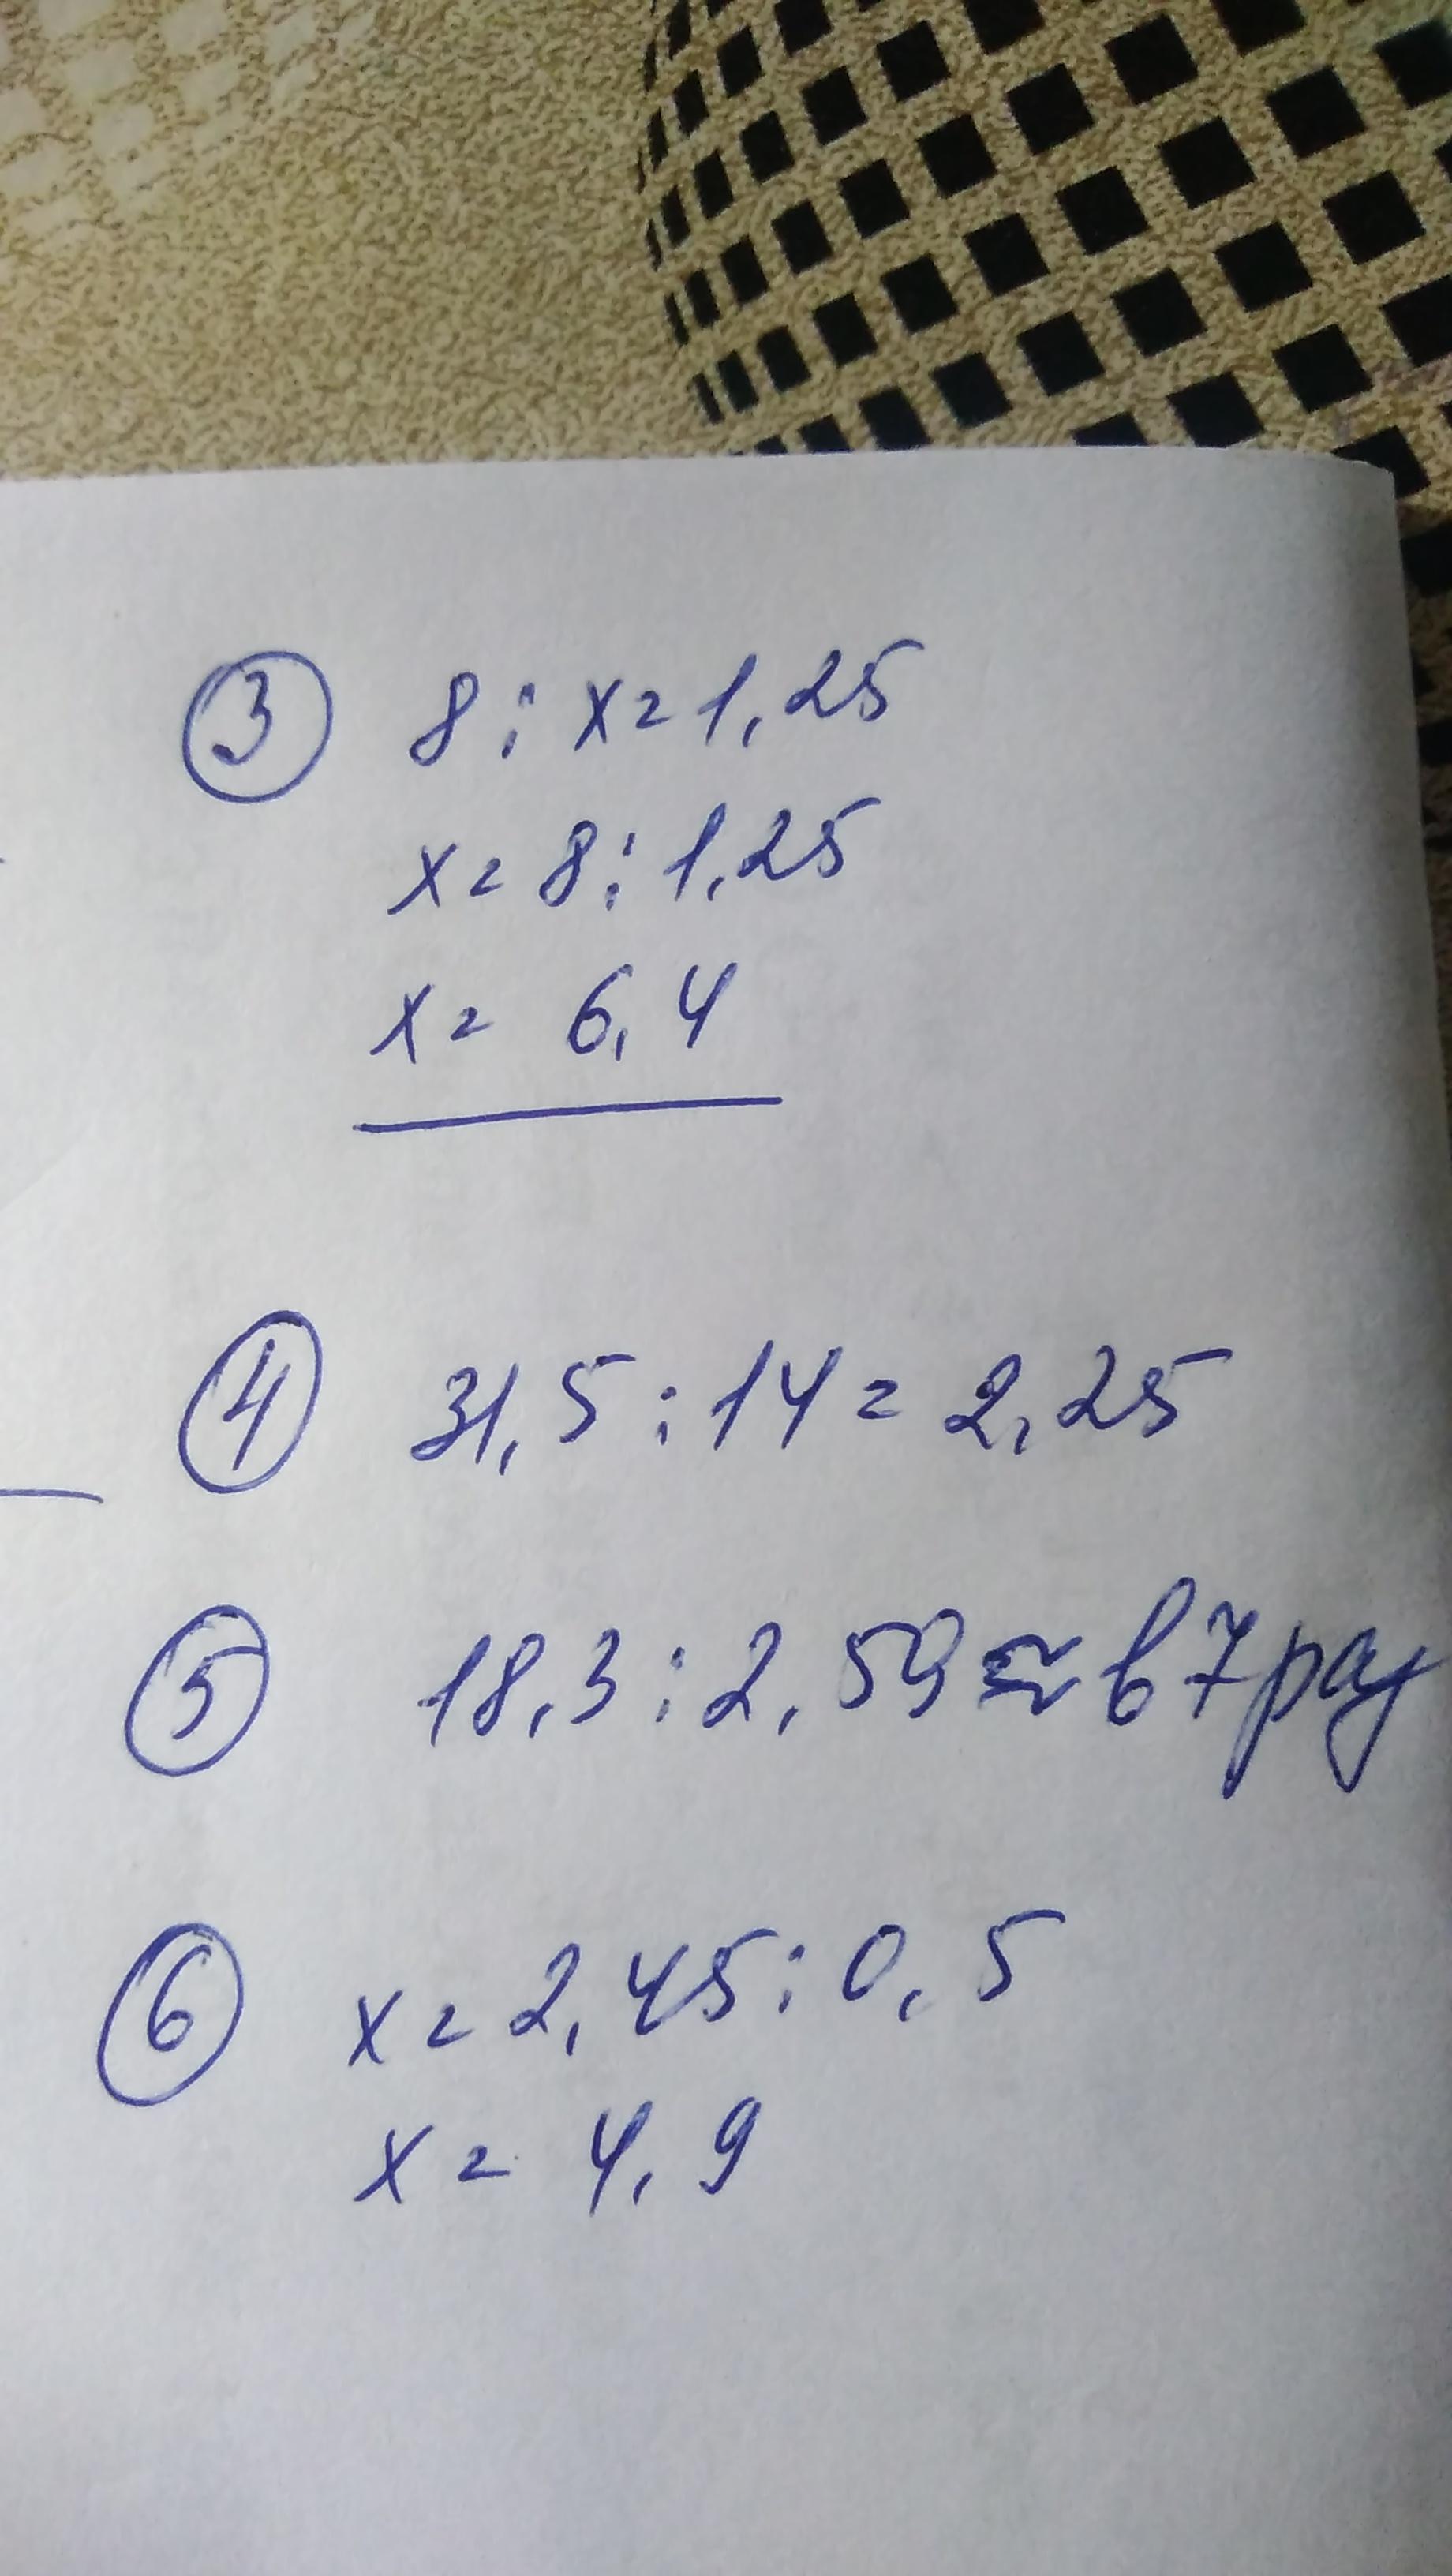 3 8 : x = 1,25
x = 8 : 1,25
x = 6,4
4 31,5 : 14 = 2,25
5 18,3 : 2,59 ≈ в 7 раз
6 x = 2,45 : 0,5
x = 4,9